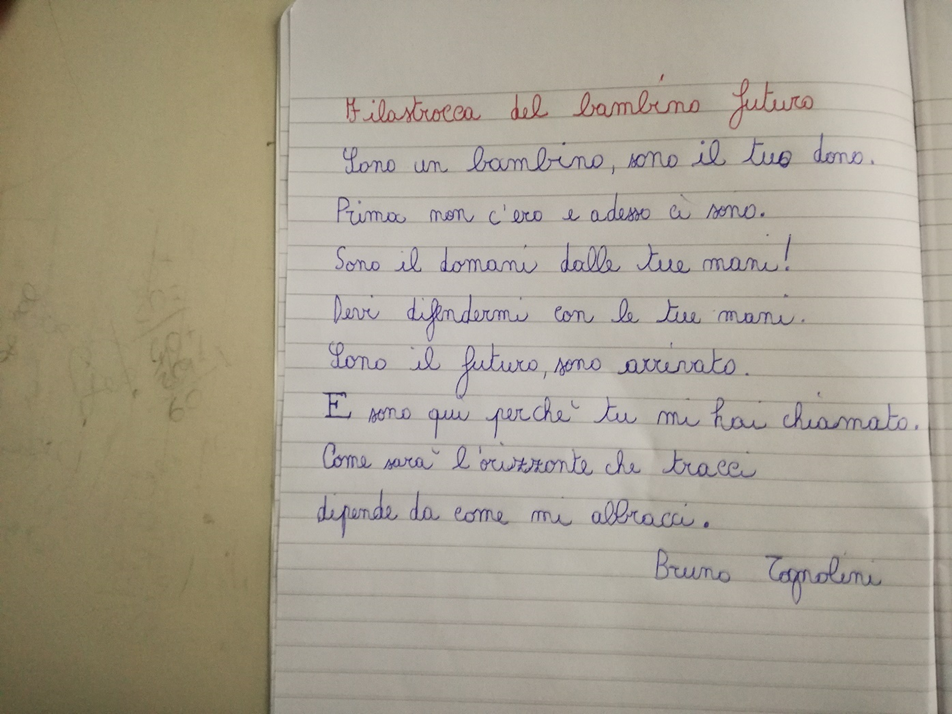 Filastrocca del bambino futuro
Sono un bambino, sono il tuo dono.
Prima non c'ero e adesso ci sono.
Sono il domani dalle tue mani!
Devi difendermi con le tue mani.
Sono il futuro, sono arrivato.
E sono qui perchè tu mi hai chiamato.
Come sarà l'orizzonte che tracci
dipende da come mi abbracci.
Bruno Tognolini